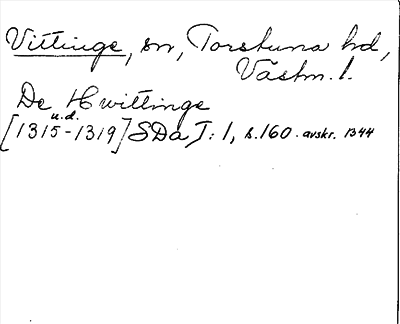 Vittinge, sn, Torstuna hd,
Västm. l.
De Hwittinge
u.d.
[1315-1319] SDa I: 1, s. 160. avskr. 1344